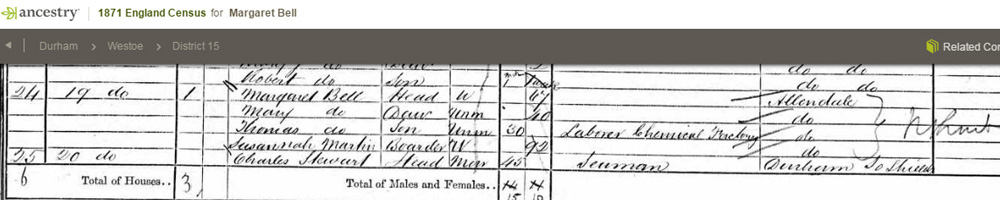 ancestry 1871 England Census for Margaret Bell
Durham Westoe District 15 Related Con
do Daur
Robert do Son do do
24 19 do 1 Margaret Bell Head W 67 do do
Mary do Daur Unm 40 Allendale
Thomas do Son Unm 30 Laborer Chemical Factory do
Susannah Martin Boarder W 92 do
25 20 do Charles Stewart Head Mar 45 Seaman do
Durham So Shields
6 Total of Houses.. 3 Total of Males and Females.. 14 11
15 10